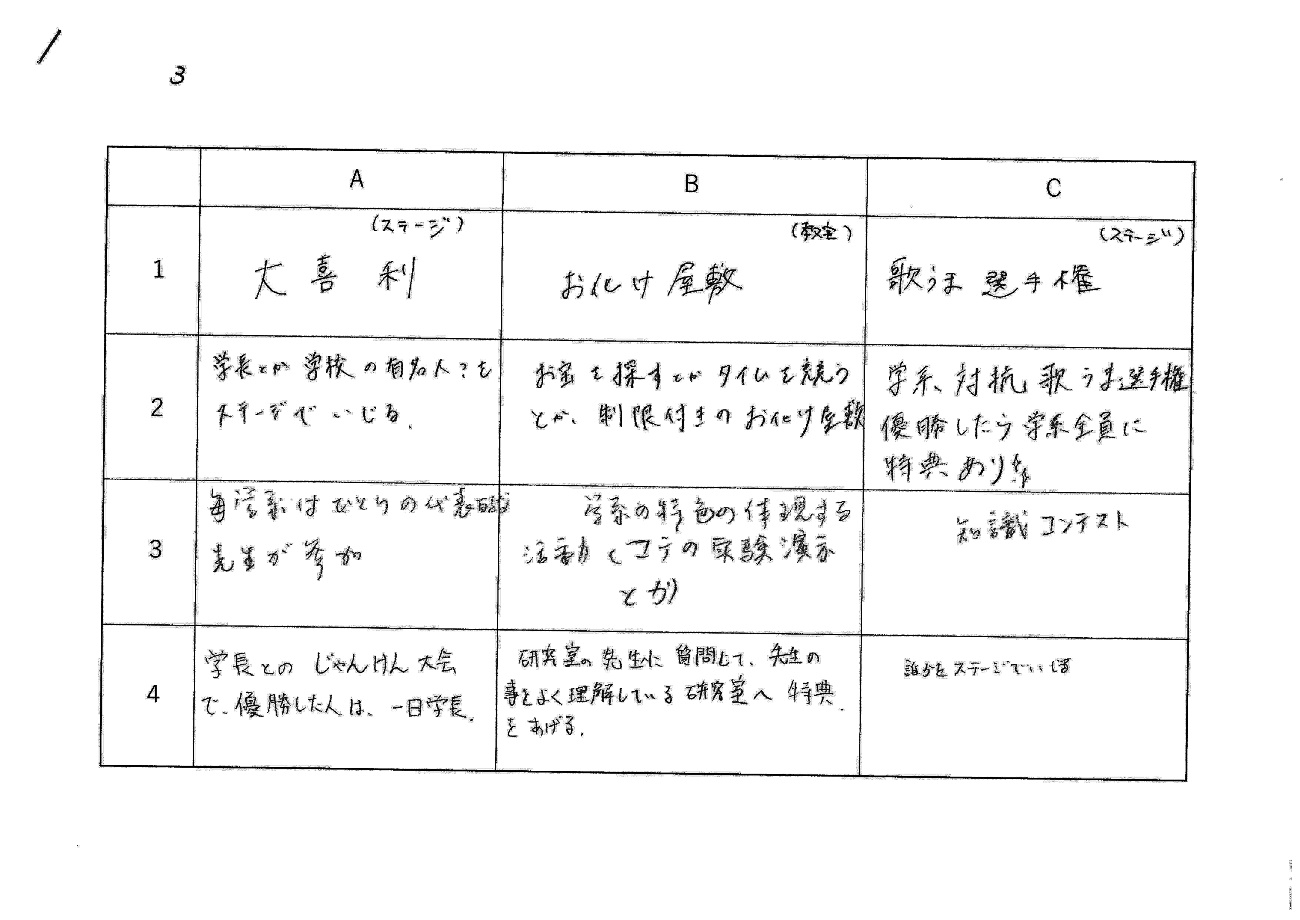 3
A B C
1
(ステージ)
大喜利
(教室)
お化け屋敷
(ステージ)
歌うま選手権
2
学長とか学校の有名人?を
ステージでいじる.
お宝を探すとかタイムを競う
とか、制限付きのお化け屋敷
学系、対抗、歌うま選手権
優勝したら学系全員に
特典あり
3
毎学系はひとりの代表
先生が参加
学系の特色の体現する
活動(コテの実験演示
とか)
知識コンテスト
4
学長との じゃんけん大会
で、優勝した人は、一日学長.
研究室の先生に質問して、先生の
事をよく理解している研究室へ 特典
をあげる.
誰かをステージでいじる